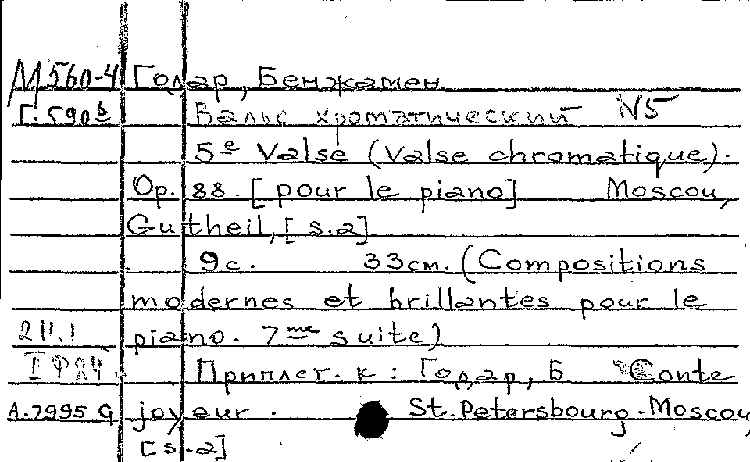 М560-4 Годар, Бенжамен
Г.590ᵇ Вальс хроматический №5
5ᵉ Valse (Valse chromatique).
Op. 88. [pour le piano] Moscou,
Gutheil, [s.a]
9с. 33см. (Compositions
modernes et brillantes pour le
211.1 piano. 7ᵐᵉ suite)
Приплет. к: Годар, Б Conte
A.7995 G joyeur. St. Petersbourg-Moscou
[s.a]